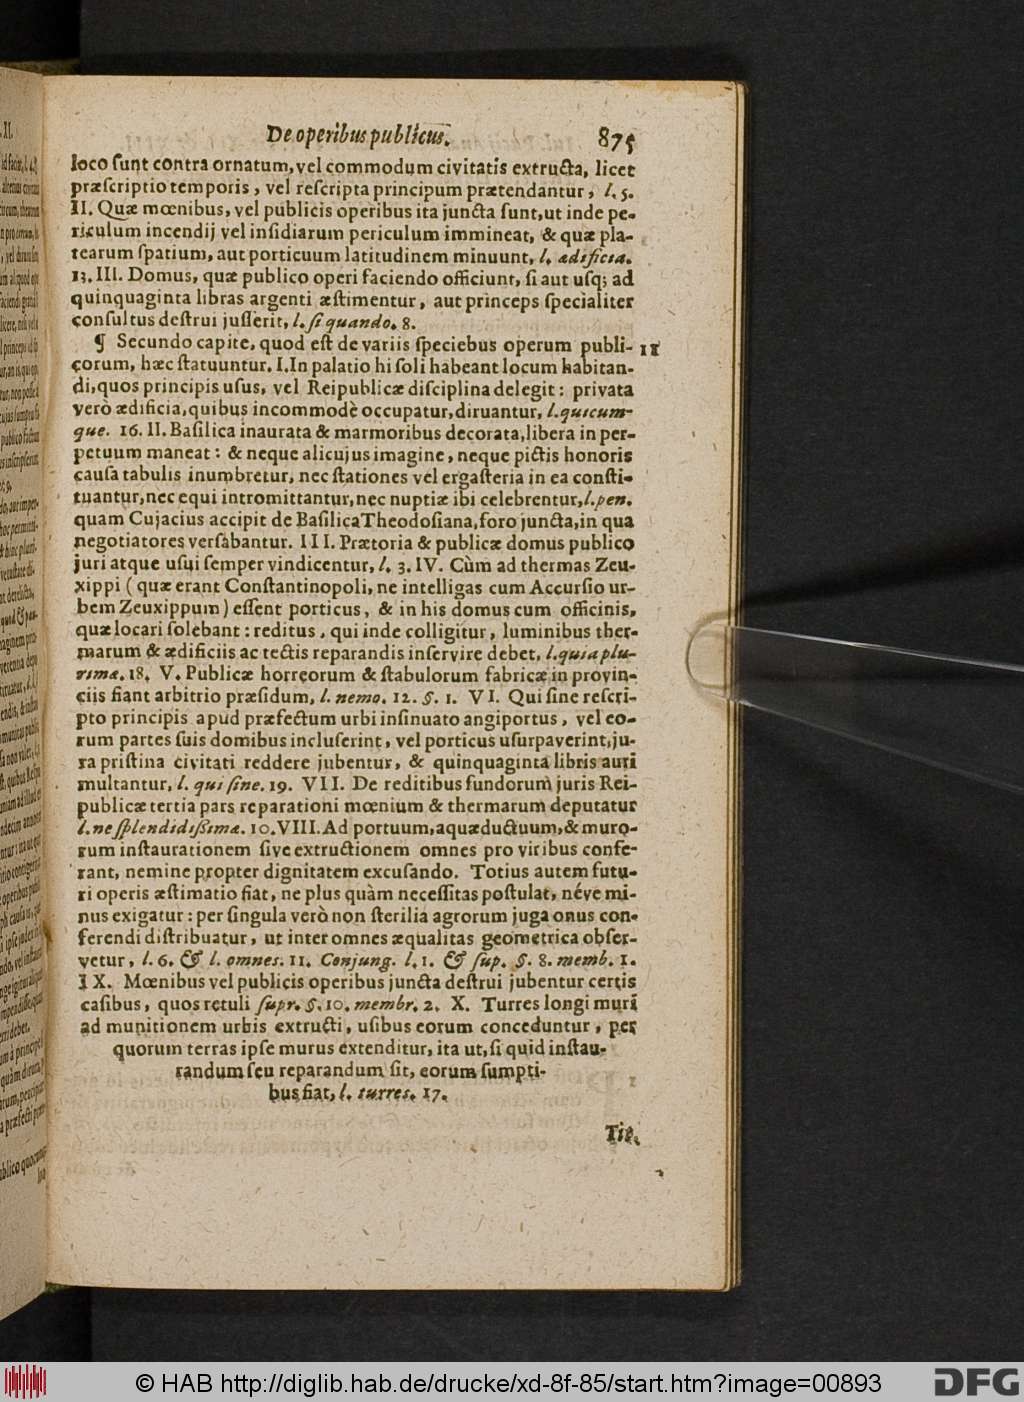 De operibus publicus. 875
loco sunt contra ornatum, vel commodum civitatis extructa, licet
præscriptio temporis, vel rescripta principum prætendantur, l. 5.
II. Quæ mœnibus, vel publicis operibus ita juncta sunt, ut inde pe-
riculum incendij vel insidiarum periculum immineat, & quæ pla-
tearum spatium, aut porticuum latitudinem minuunt, l. ædificia.
13. III. Domus, quæ publico operi faciendo officiunt, si aut usq; ad
quinquaginta libras argenti æstimentur, aut princeps specialiter
consultus destrui jusserit, l. si quando. 8.
¶ Secundo capite, quod est de variis speciebus operum publi- 11
corum, hæc statuuntur. I. In palatio hi soli habeant locum habitan-
di, quos principis usus, vel Reipublicæ disciplina delegit: privata
verò ædificia, quibus incommodè occupatur, diruantur, l. quicum-
que. 16. II. Basilica inaurata & marmoribus decorata, libera in per-
petuum maneat: & neque alicujus imagine, neque pictis honoris
causa tabulis inumbretur, nec stationes vel ergasteria in ea consti-
tuantur, nec equi intromittantur, nec nuptiæ ibi celebrentur, l. pen.
quam Cujacius accipit de Basilica Theodosiana, foro juncta, in qua
negotiatores versabantur. III. Prætoria & publicæ domus publico
juri atque usui semper vindicentur, l. 3. IV. Cùm ad thermas Zeu-
xippi (quæ erant Constantinopoli, ne intelligas cum Accursio ur-
bem Zeuxippum) essent porticus, & in his domus cum officinis,
quæ locari solebant: reditus, qui inde colligitur, luminibus ther-
marum & ædificiis ac tectis reparandis inservire debet, l. quia plu-
rima. 18. V. Publicæ horreorum & stabulorum fabricæ in provin-
ciis fiant arbitrio præsidum, l. nemo. 12. §. 1. VI. Qui sine rescri-
pto principis apud præfectum urbi insinuato angiportus, vel eo-
rum partes suis domibus incluserint, vel porticus usurpaverint, ju-
ra pristina civitati reddere jubentur, & quinquaginta libris auri
multantur, l. qui sine. 19. VII. De reditibus fundorum juris Rei-
publicæ tertia pars reparationi mœnium & thermarum deputatur
l. ne splendidissimæ. 10. VIII. Ad portuum, aquæductuum, & muro-
rum instaurationem sive extructionem omnes pro viribus confe-
rant, nemine propter dignitatem excusando. Totius autem futu-
ri operis æstimatio fiat, ne plus quàm necessitas postulat, néve mi-
nus exigatur: per singula verò non sterilia agrorum juga onus con-
ferendi distribuatur, ut inter omnes æqualitas geometrica obser-
vetur, l. 6. & l. omnes. 11. Conjung. l. 1. & sup. §. 8. memb. 1.
IX. Mœnibus vel publicis operibus juncta destrui jubentur certis
casibus, quos retuli supr. §. 10. membr. 2. X. Turres longi muri
ad munitionem urbis extructi, usibus eorum conceduntur, per
quorum terras ipse murus extenditur, ita ut, si quid instau-
randum seu reparandum sit, eorum sumpti-
bus fiat, l. turres. 17.
Tit.
© HAB http://diglib.hab.de/drucke/xd-8f-85/start.htm?image=00893
DFG